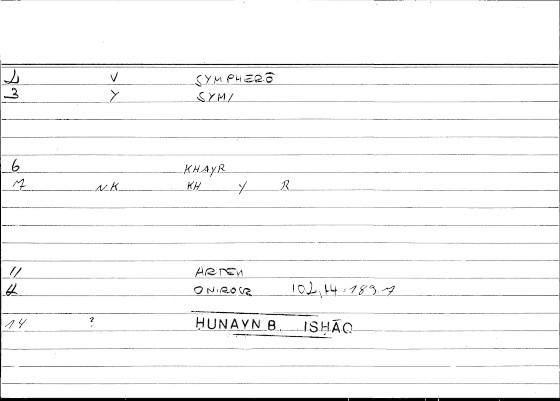 2 V SYMPHERŌ
3 Y SYM/
6 KHAYR
7 NK KH Y R
11 ARTEM
12 ONIROCR 102,14 = 189.7
14 ? ḤUNAYN B. ISḤĀQ